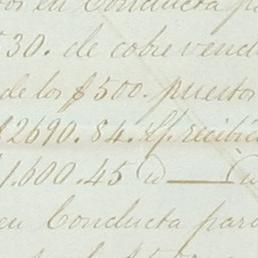 en Conducta p
30. de cobre vend
de los $500. puestos
$2690.84. q. recibi
1.600.45
en Conducta para